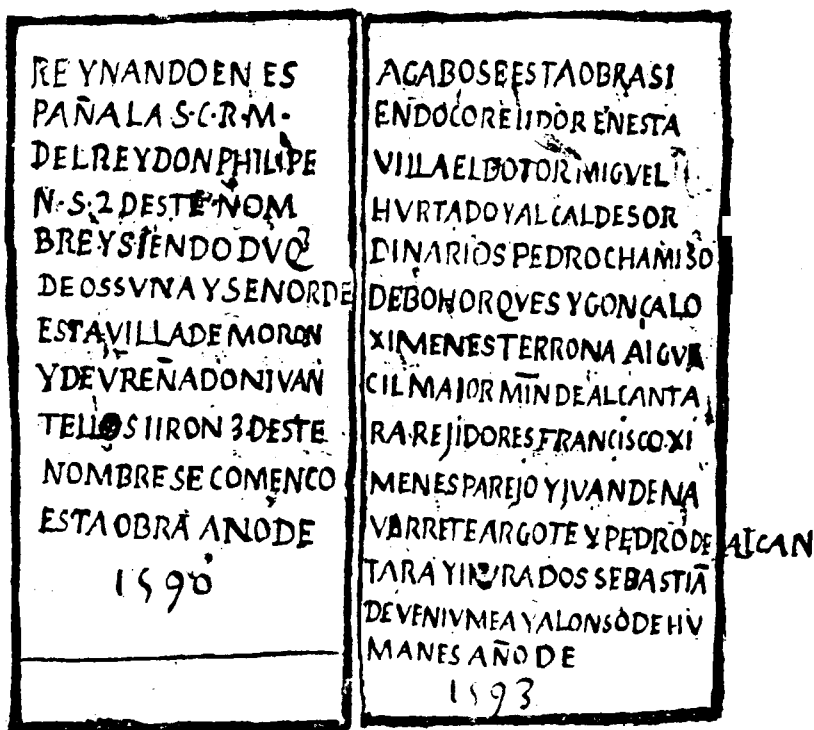 REYNANDO EN ES
PAÑA LA S.C.R.M.
DEL REY DON PHILIPE
N.S. 2 DESTE NOM
BRE Y SIENDO DVQ
DE OSSVNA Y SENOR DE
ESTA VILLA DE MORON
Y DE VREÑA DON IVAN
TELLOS IIRON 3 DESTE
NOMBRE SE COMENCO
ESTA OBRA ANO DE
1590
ACABOSE ESTA OBRA SI
ENDO COREIIDOR EN ESTA
VILLA EL DOTOR MIGVEL
HVRTADO Y ALCALDES OR
DINARIOS PEDRO CHAMISO
DE BOHORQVES Y GONÇALO
XIMENES TERRONA ALGVA
CIL MAIOR MĪN DE ALCANTA
RA REJIDORES FRANCISCO XI
MENES PAREJO Y JVAN DE NA
VARRETE ARGOTE Y PEDRO DE ALCAN
TARA Y IVRADOS SEBASTIÃ
DE VENIVMEA Y ALONSO DE HV
MANES AÑO DE
1593